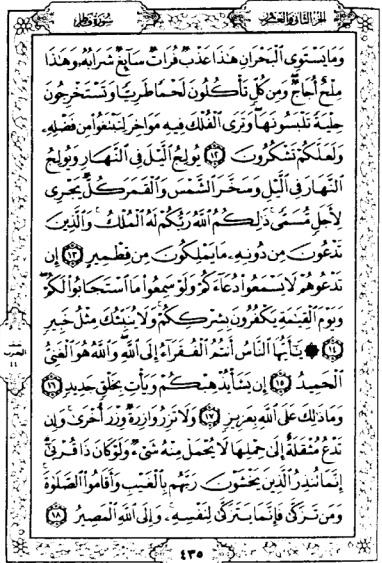 الجزء الثاني والعشرون
سورة فاطر
وَمَا يَسْتَوِي الْبَحْرَانِ هَٰذَا عَذْبٌ فُرَاتٌ سَائِغٌ شَرَابُهُ وَهَٰذَا
مِلْحٌ أُجَاجٌ وَمِن كُلٍّ تَأْكُلُونَ لَحْمًا طَرِيًّا وَتَسْتَخْرِجُونَ
حِلْيَةً تَلْبَسُونَهَا وَتَرَى الْفُلْكَ فِيهِ مَوَاخِرَ لِتَبْتَغُوا مِن فَضْلِهِ
وَلَعَلَّكُمْ تَشْكُرُونَ ١٢ يُولِجُ اللَّيْلَ فِي النَّهَارِ وَيُولِجُ
النَّهَارَ فِي اللَّيْلِ وَسَخَّرَ الشَّمْسَ وَالْقَمَرَ كُلٌّ يَجْرِي
لِأَجَلٍ مُّسَمًّى ذَٰلِكُمُ اللَّهُ رَبُّكُمْ لَهُ الْمُلْكُ وَالَّذِينَ
تَدْعُونَ مِن دُونِهِ مَا يَمْلِكُونَ مِن قِطْمِيرٍ ١٣ إِن
تَدْعُوهُمْ لَا يَسْمَعُوا دُعَاءَكُمْ وَلَوْ سَمِعُوا مَا اسْتَجَابُوا لَكُمْ
وَيَوْمَ الْقِيَٰمَةِ يَكْفُرُونَ بِشِرْكِكُمْ وَلَا يُنَبِّئُكَ مِثْلُ خَبِيرٍ
١٤ يَٰأَيُّهَا النَّاسُ أَنتُمُ الْفُقَرَاءُ إِلَى اللَّهِ وَاللَّهُ هُوَ الْغَنِيُّ
الْحَمِيدُ ١٥ إِن يَشَأْ يُذْهِبْكُمْ وَيَأْتِ بِخَلْقٍ جَدِيدٍ ١٦
وَمَا ذَٰلِكَ عَلَى اللَّهِ بِعَزِيزٍ ١٧ وَلَا تَزِرُ وَازِرَةٌ وِزْرَ أُخْرَىٰ وَإِن
تَدْعُ مُثْقَلَةٌ إِلَىٰ حِمْلِهَا لَا يُحْمَلْ مِنْهُ شَيْءٌ وَلَوْ كَانَ ذَا قُرْبَىٰ
إِنَّمَا تُنذِرُ الَّذِينَ يَخْشَوْنَ رَبَّهُم بِالْغَيْبِ وَأَقَامُوا الصَّلَوٰةَ
وَمَن تَزَكَّىٰ فَإِنَّمَا يَتَزَكَّىٰ لِنَفْسِهِ وَإِلَى اللَّهِ الْمَصِيرُ ١٨
الحزب
٤٤
٤٣٥